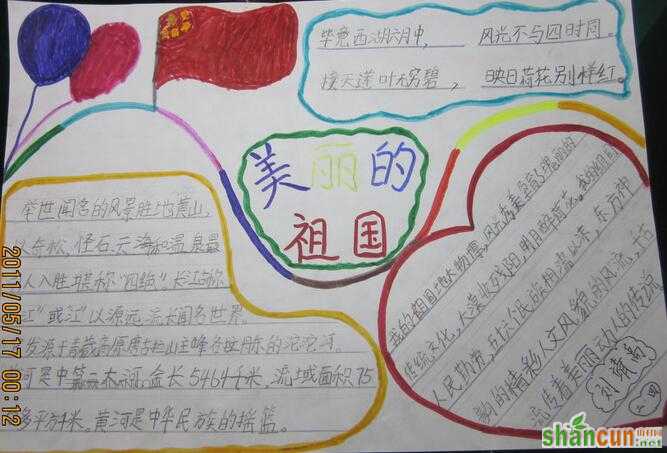 毕竟西湖六月中, 风光不与四时同。
接天莲叶无穷碧, 映日荷花别样红。
美丽的
祖国
举世闻名的风景胜地黄山,
奇松、怪石、云海和温泉最
人入胜,堪称"四绝"。长江
江"或江"以源远流长闻名世界。
发源于青藏高原唐古拉山主峰各拉丹东的沱沱河。
河是中第二大河,全长5464千米,流域面积75
多平方千米。黄河是中华民族的摇篮。
我的祖国地大物博,风光秀美,孕育了瑰丽的
传统文化,大漠收残阳,明月醉荷花,
人民勤劳,五十六个民族相濡以沫,东方神
韵的精彩人文风貌的风流,诉
说传者美丽动人的传说
2011/05/17 00:12
shancun
.net